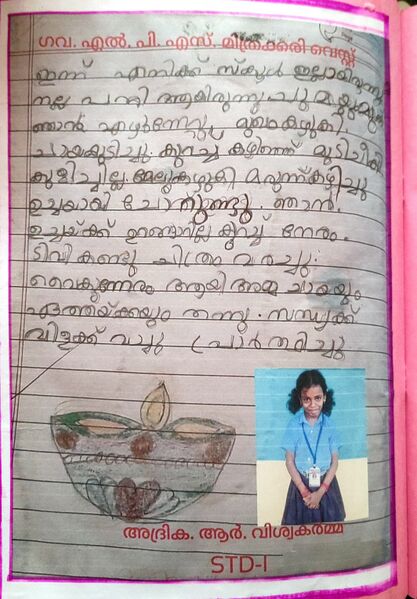 ഗവ. എൽ. പി. എസ്. മിത്രക്കരി വെസ്റ്റ്
ഇന്ന് എനിക്ക് സ്കൂൾ ഇല്ലായിരുന്നു
നല്ല പനി ആയിരുന്നു
ഞാൻ എഴുന്നേറ്റു മുഖംകഴുകി
ചായകുടിച്ചു. കുറച്ചു കഴിഞ്ഞ് മുടിചീകി
കുളിച്ചില്ല. മേലുകഴുകി മരുന്ന്കഴിച്ചു
ഉച്ചയായി ചോറുണ്ടു. ഞാൻ.
ഉച്ചയ്ക്ക് ഉറങ്ങാറില്ല കുറച്ച് നേരം.
ടിവികണ്ടു ചിത്രം വരച്ചു.
വൈകുന്നേരം ആയി അമ്മ ചായയും
ഏത്തയ്ക്കയും തന്നു. സന്ധ്യക്ക്
വിളക്ക് വച്ചു പ്രാർത്ഥിച്ചു
അദ്രിക. ആർ. വിശ്വകർമ്മ
STD-I